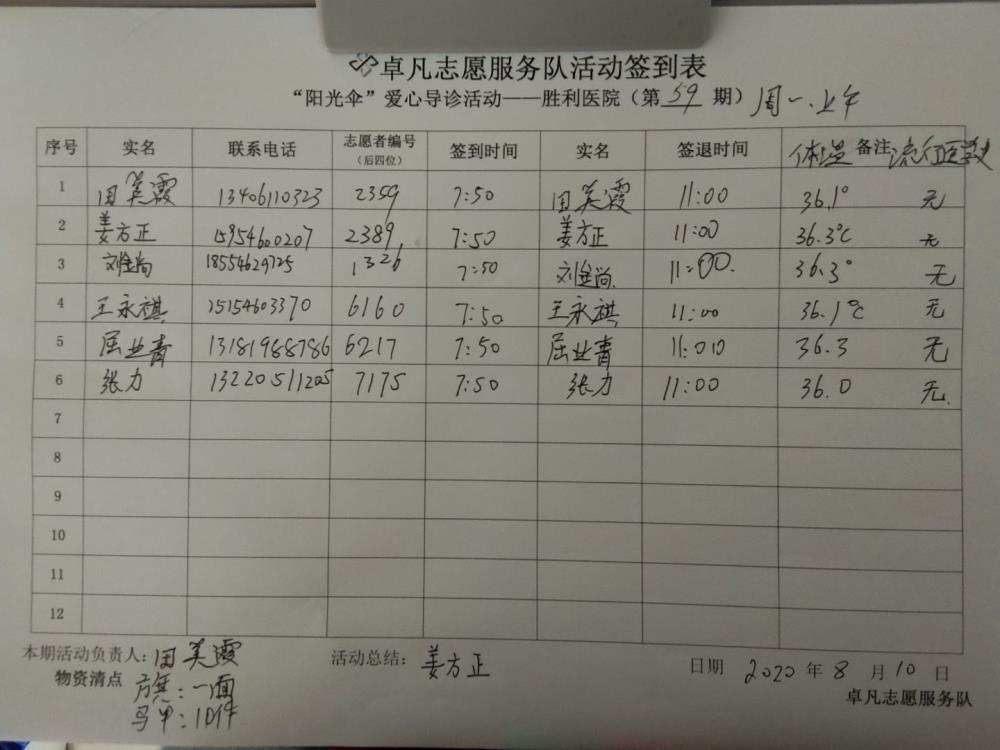 卓凡志愿服务队活动签到表
“阳光伞”爱心导诊活动——胜利医院（第 59 期） 周一.上午
序号 实名 联系电话 志愿者编号（后四位） 签到时间 实名 签退时间 体温 备注 流行医学史
1 田美霞 13406110323 2359 7:50 田美霞 11:00 36.1° 无
2 姜方正 15954600207 2389 7:50 姜方正 11:00 36.3℃ 无
3 18554629725 1326 7:50 11:00. 36.3° 无
4 王永祺 15154603370 6160 7:50 王永祺 11:00 36.1℃ 无
5 屈业青 13181988786 6217 7:50 屈业青 11:00 36.3 无
6 张力 13220511205 7175 7:50 张力 11:00 36.0 无.
7
8
9
10
11
12
本期活动负责人: 田美霞 活动总结: 姜方正 日期 2020 年 8 月 10 日
物资清点 旗：一面 卓凡志愿服务队
马甲：10件